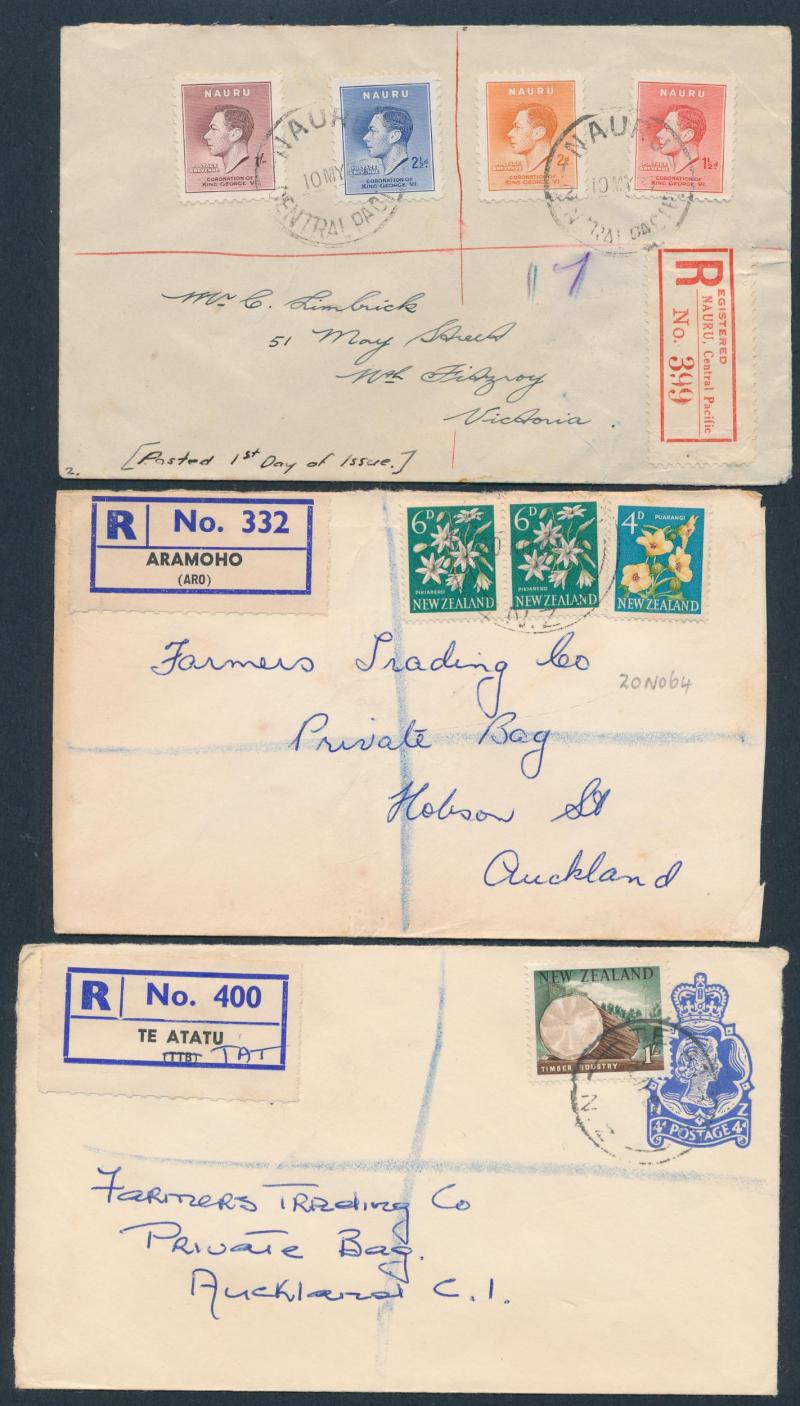 NAURU
POSTAGE & REVENUE
1/-
CORONATION OF
KING GEORGE VI.
NAURU
POSTAGE & REVENUE
2½d.
CORONATION OF
KING GEORGE VI.
NAURU
POSTAGE & REVENUE
2d
CORONATION OF
KING GEORGE VI.
NAURU
POSTAGE & REVENUE
1½d
CORONATION OF
KING GEORGE VI.
NAUR
10 MY
CENTRAL PACI
NAURU
10 MY
Mr C. Limbrick
51 May Street
Nth Fitzroy
Victoria.
[Posted 1st Day of Issue.]
2.
REGISTERED
NAURU, Central Pacific
No. 399
R No. 332
ARAMOHO
(ARO)
6D
PIKIARERO
NEW ZEALAND
6D
PIKIARERO
NEW ZEALAND
4D
PUARANGI
NEW ZEALAND
N.Z
Farmers Trading Co
20NO64
Private Bag
Hobson St
Auckland
R No. 400
TE ATATU
(TTB) TAT
NEW ZEALAND
1/-
TIMBER INDUSTRY
N.Z
N Z
4d POSTAGE 4d
Farmers Trading Co
Private Bag.
Auckland C.1.